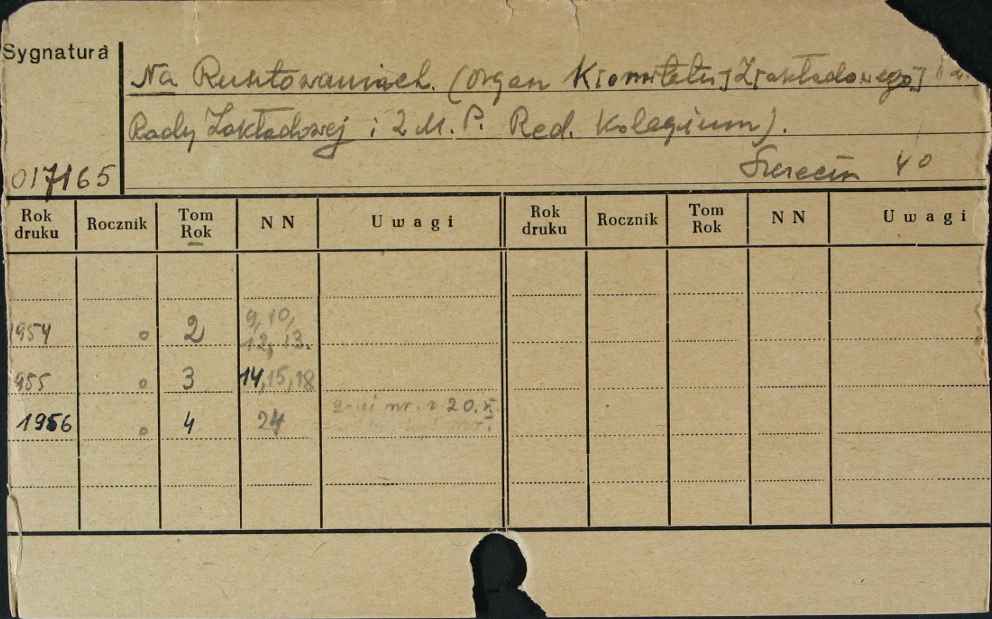 Sygnatura
Na Rusztowaniach. (Organ K[omitetu] Z[akładowego]
Rady Zakładowej i Z.M.P. Red. Kolegium).
Szczecin 4०
017165
Rok druku Rocznik Tom Rok NN Uwagi Rok druku Rocznik Tom Rok NN Uwagi
1954 o 2 9, 10, 12, 13.
955 o 3 14, 15, 18
1956 o 4 24 nr. z 20.X